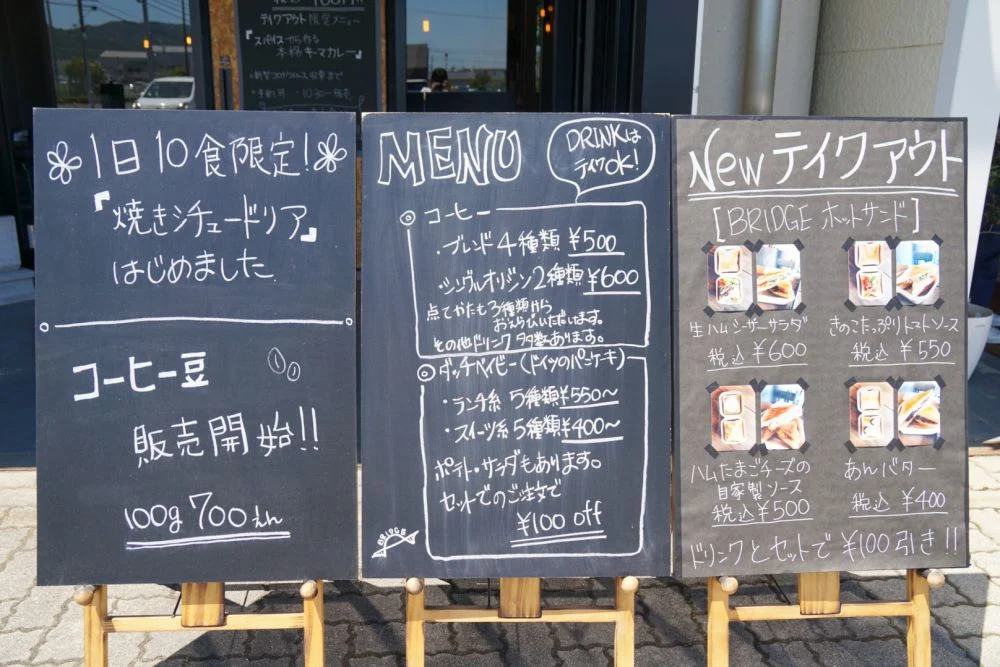 テイクアウト限定メニュー
『スパイスから作る
本格キーマカレー』
1日10食限定!
『焼きシチュードリア』
はじめました
コーヒー豆
販売開始!!
100g 700えん
MENU
DRINKは
テイクOK!
コーヒー
・ブレンド4種類 ¥500
・シングルオリジン2種類 ¥600
点てかたも3種類から
おえらびいただけます。
その他ドリンク多数あります。
ダッチベイビー(ドイツのパンケーキ)
・ランチ系 5種類 ¥550〜
・スイーツ系 5種類 ¥400〜
ポテト・サラダもあります。
セットでのご注文で
¥100 off
BRIDGE
New テイクアウト
[BRIDGE ホットサンド]
生ハムシーザーサラダ
税込 ¥600
きのこたっぷりトマトソース
税込 ¥550
ハムたまごチーズの
自家製ソース
税込 ¥500
あんバター
税込 ¥400
ドリンクとセットで ¥100引き!!